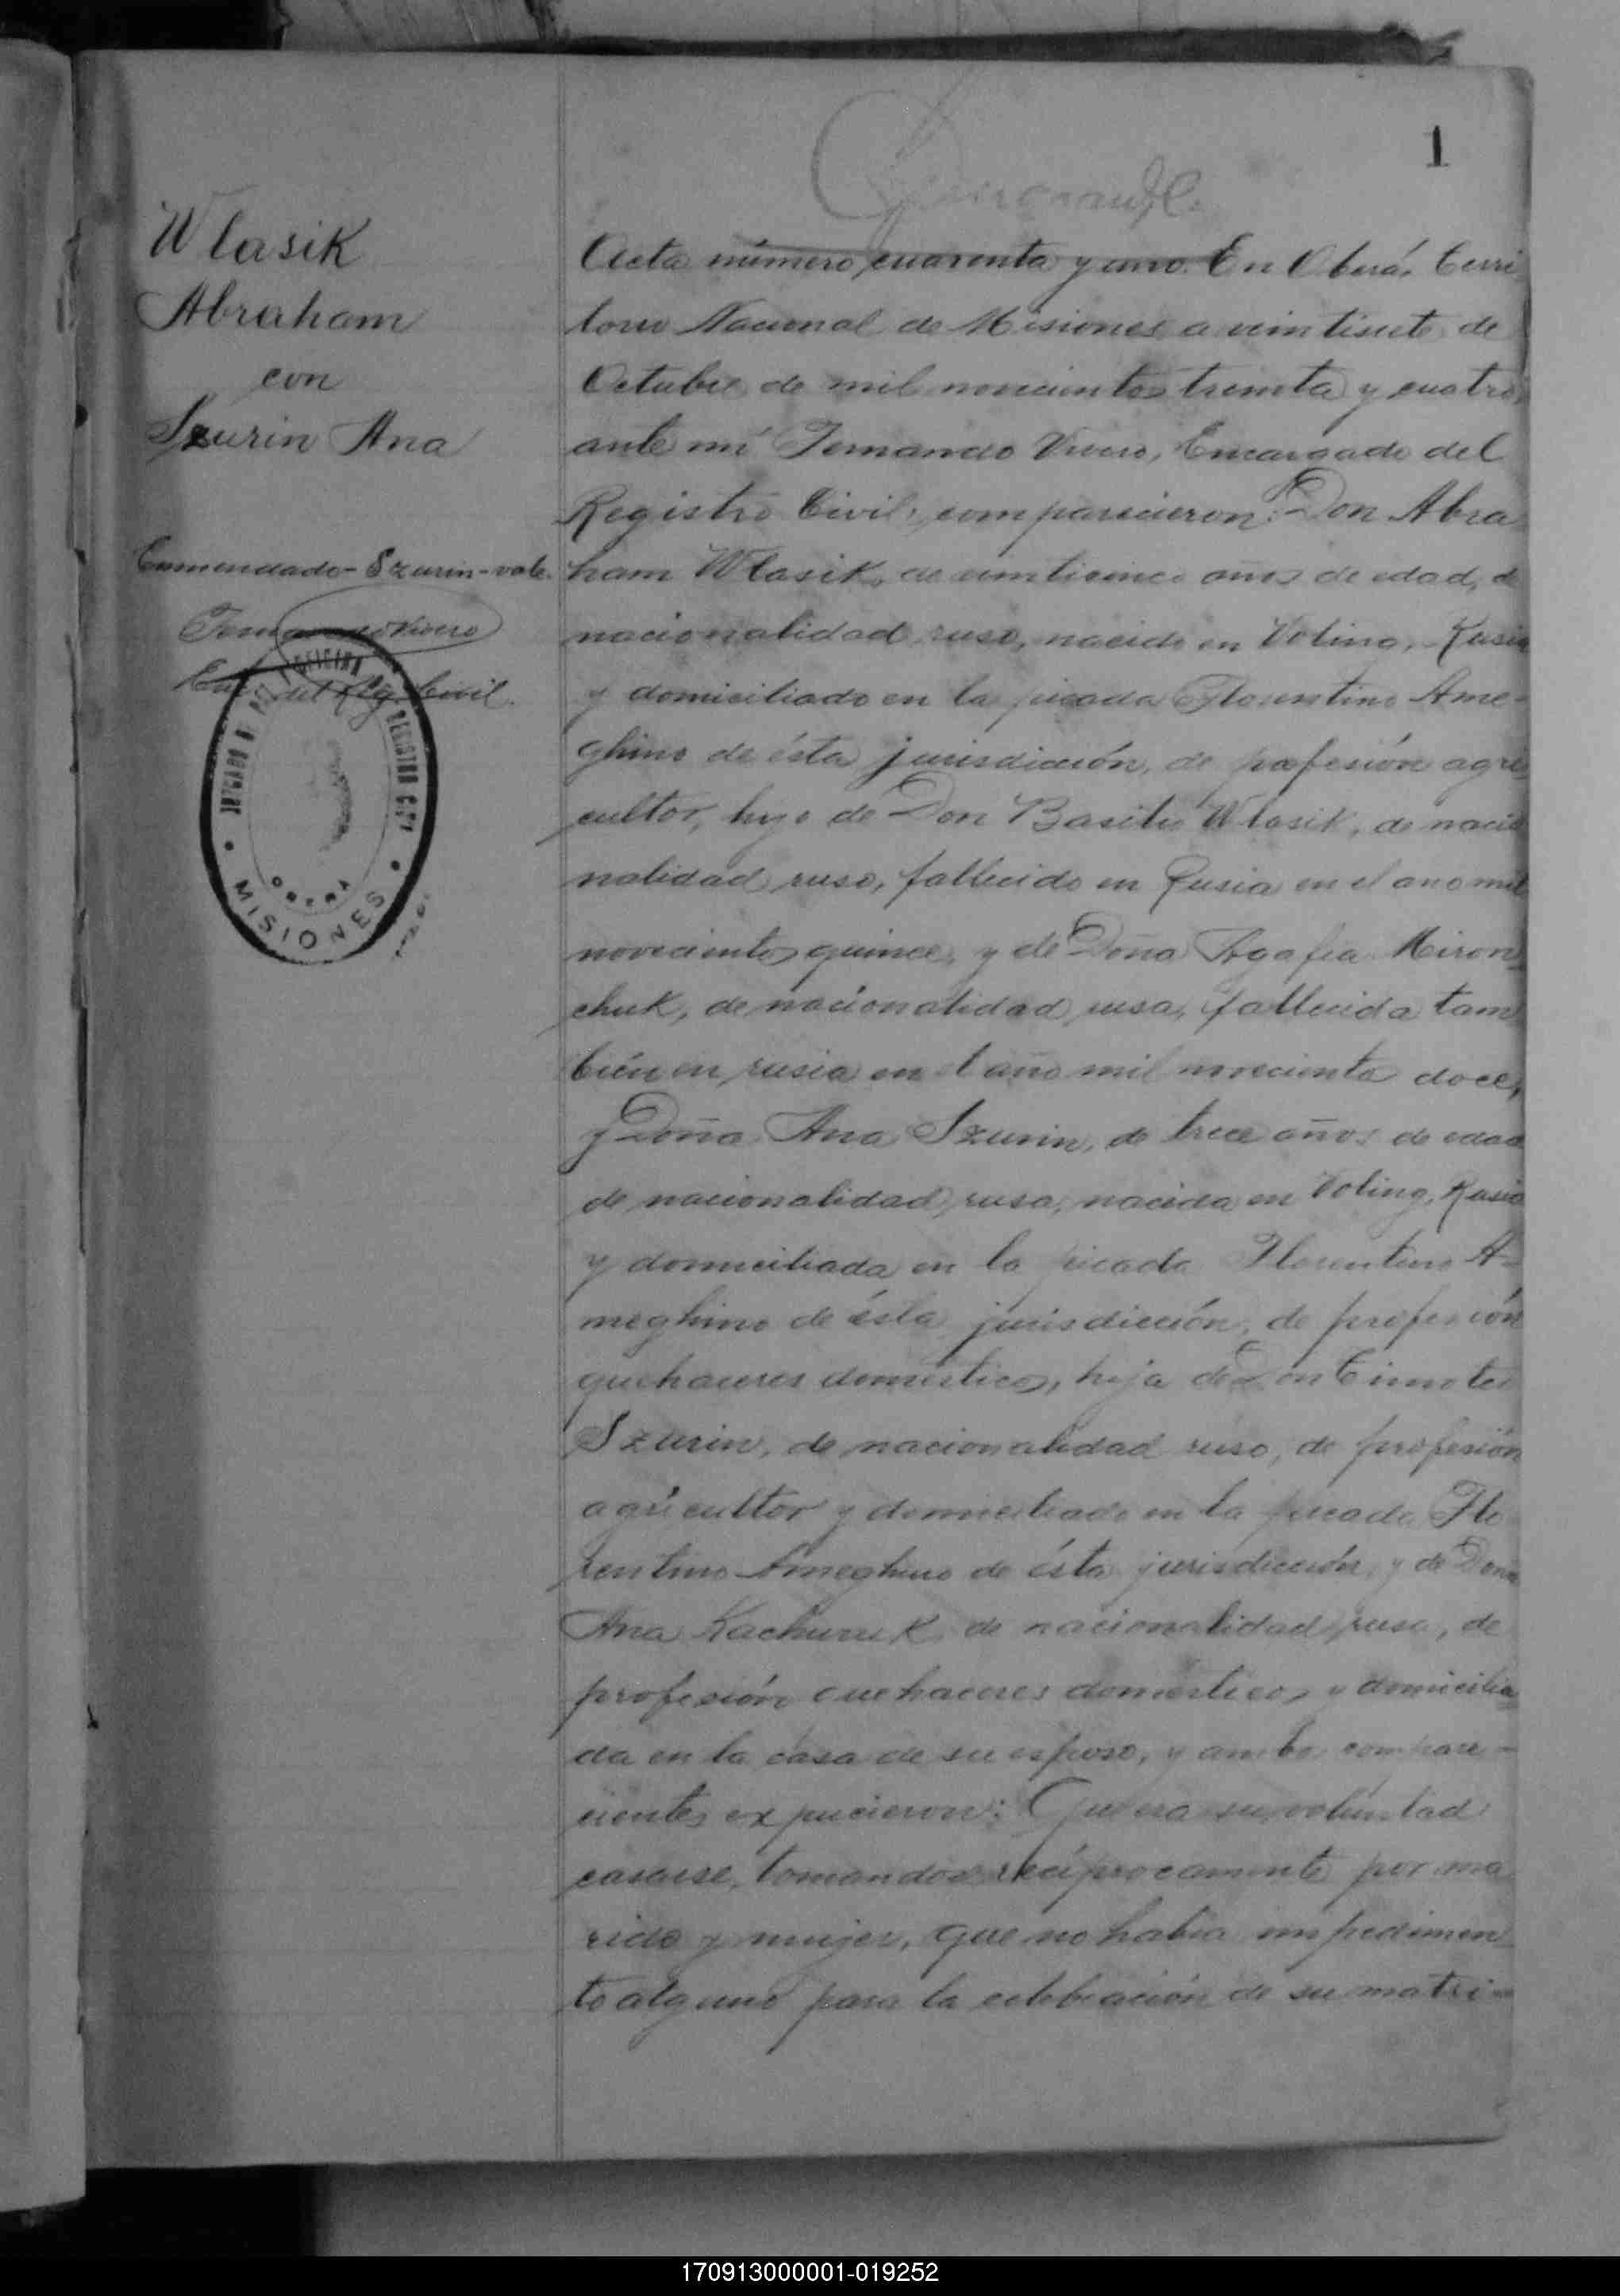 1
Wlasik
Abraham
con
Szurin Ana
Enmendado-Szurin-vale.
Fernando Vivero
Enc. del Reg. Civil.
OFICINA
REGISTRO CIVIL
JUZGADO DE PAZ
OBERA
MISIONES
Acta número cuarenta y uno. En Oberá, Terri
torio Nacional de Misiones a veintisiete de
Octubre de mil novecientos treinta y cuatro,
ante mi Fernando Vivero, Encargado del
Registro Civil, comparecieron: Don Abra
ham Wlasik, de veinticinco años de edad, de
nacionalidad ruso, nacido en Volino, Rusia
y domiciliado en la picada Florentino Ame-
ghino de ésta jurisdicción, de profesión agri
cultor, hijo de Don Basilio Wlasik, de nacio
nalidad ruso, fallecido en Rusia en el ano mil
novecientos quince, y de Doña Agafia Miron
chuk, de nacionalidad rusa, fallecida tam
bién en rusia en el año mil novecientos doce,
y Doña Ana Szurin, de trece años de edad
de nacionalidad rusa, nacida en Volino, Rusia
y domiciliada en la picada Florentino A-
meghino de ésta jurisdicción, de profesión
quehaceres domésticos, hija de Don Timoteo
Szurin, de nacionalidad ruso, de profesión
agricultor y domiciliado en la picada Flo
rentino Ameghino de ésta jurisdicción, y de Dona
Ana Kachuruk de nacionalidad rusa, de
profesión quehaceres domésticos y domicilia
da en la casa de su esposo, y ambos compare-
cientes expucieron: Que era su voluntad
casarse, tomandose recíprocamente por ma
rido y mujer, que no habia impedimen
to alguno para la celebración de su matri-
170913000001-019252